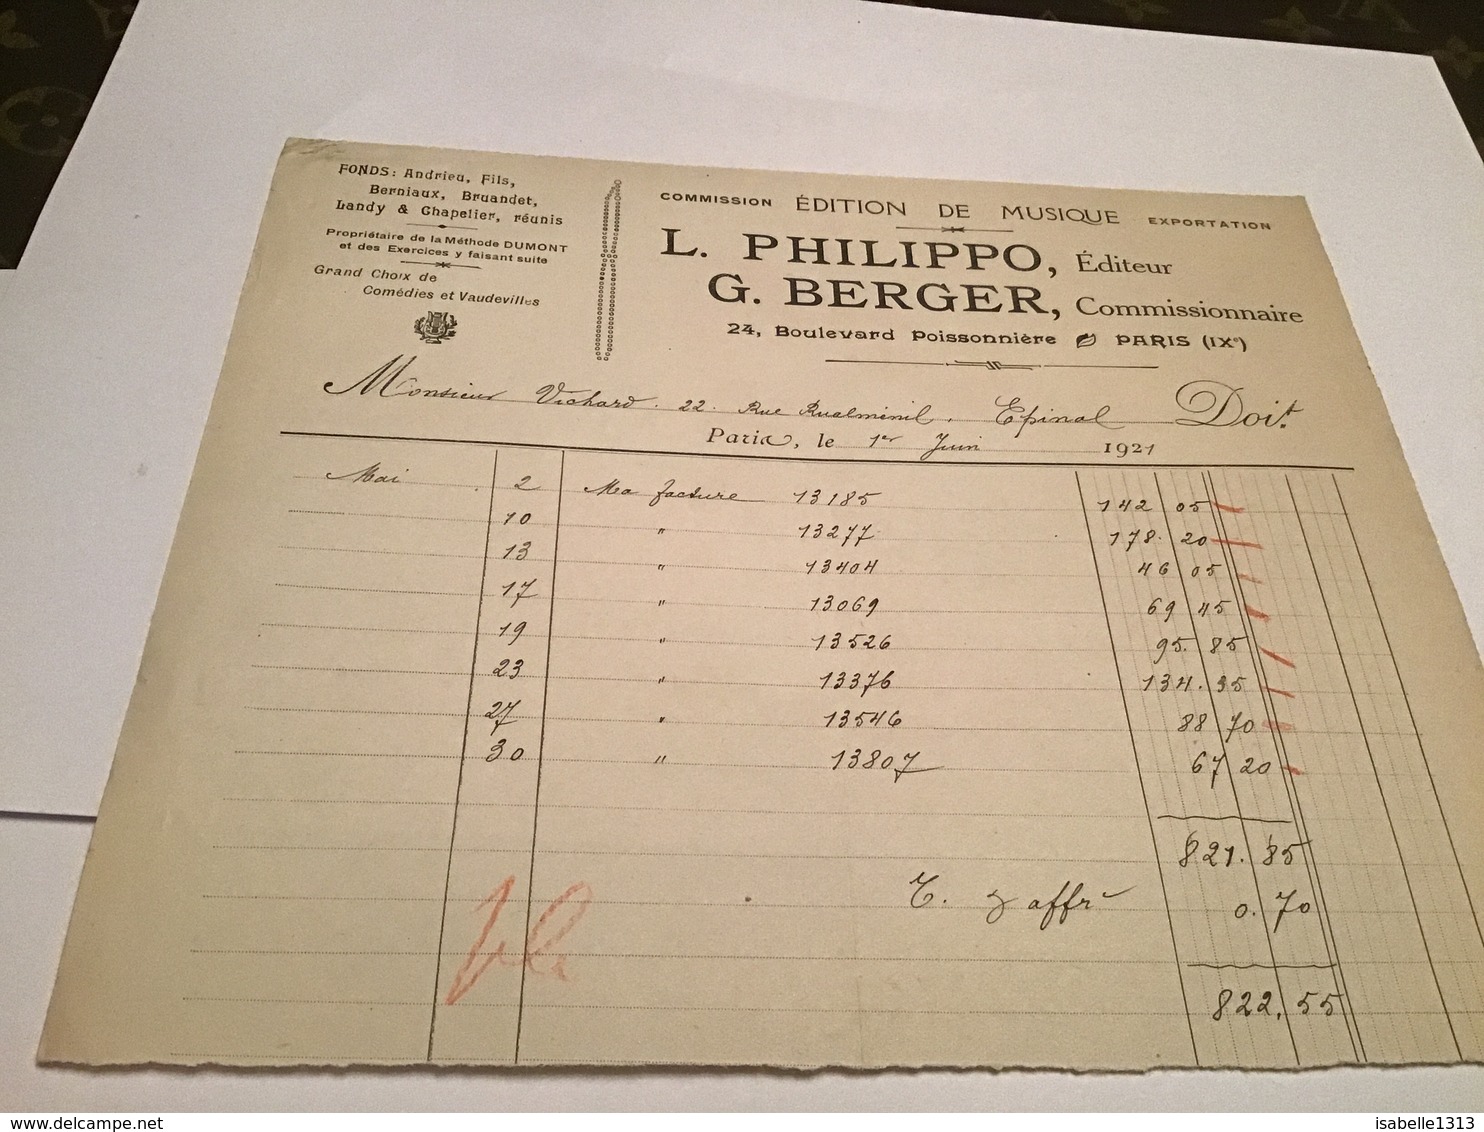 FONDS: Andrieu, Fils,
Berniaux, Bruandet,
Landy & Chapelier, réunis
Propriétaire de la Méthode DUMONT
et des Exercices y faisant suite
Grand Choix de
Comédies et Vaudevilles
COMMISSION ÉDITION DE MUSIQUE EXPORTATION
L. PHILIPPO, Éditeur
G. BERGER, Commissionnaire
24, Boulevard Poissonnière PARIS (IXe)
Monsieur Vichard. 22. Rue Rualménil, Epinal Doit.
Paris, le 1er Juin 1921
Mai 2 Ma facture 13185 142 05
10 " 13277 178. 20
13 " 13404 46 05
17 " 13069 69 45
19 " 13526 95. 85
23 " 13376 134. 35
27 " 13546 88 70
30 " 13807 67 20
821. 85
T. affr 0. 70
822. 55
delcampe.net
isabelle1313